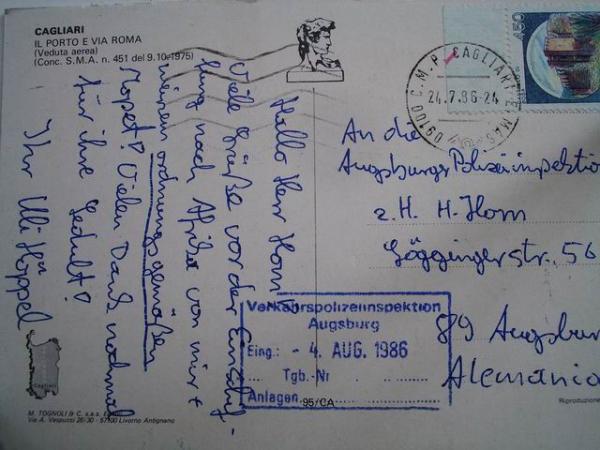 CAGLIARI
IL PORTO E VIA ROMA
(Veduta aerea)
(Conc. S.M.A. n. 451 del 9.10.1975)
Hallo Herr Horn!
Viele Grüße vor der Einschif-
fung nach Afrika von mir +
meinem ordnungsgemäßen
Mopet! Vielen Dank nochmal
für ihre Gedult!
Ihr Uli
450
09100 C.M.P. CAGLIARI
24.7.86-24
An die
Augsburger Polizeiinspektio
z.H. H. Horn
Gögginger str. 56
89 Augsbur
Alemania
Verkehrspolizeiinspektion
Augsburg
Eing.: - 4. AUG. 1986
Tgb.-Nr
Anlagen
95/CA
Cagliari
M. TOGNOLI & C. s.a.s.
Via A. Vespucci 26/30 - 57100 Livorno Antignano
Riproduzione